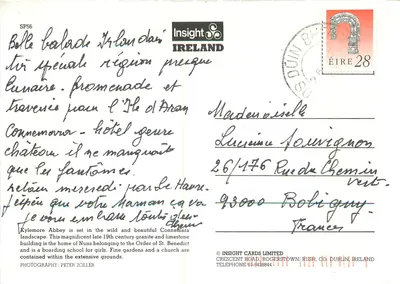 SP56
Insight
IRELAND
Belle balade Irlandaise
très spéciale région presque
lunaire. promenade et
traversée pour l'Ile d'Aran
Connemara - hôtel genre
château il ne manquait
que les fantômes.
retour mercredi par Le Havre
j'espère que votre Maman ça va
je vous embrasse
Kylemore Abbey is set in the wild and beautiful Connemara
landscape. This magnificent late 19th century granite and limestone
building is the home of Nuns belonging to the Order of St. Benedict
and is a boarding school for girls. Fine gardens and a church are
contained within the extensive grounds.
PHOTOGRAPHY - PETER ZOLLER
ÉIRE 28
Mademoiselle
Lucienne Jouvignon
26/176 Rue du Chemin
vert.
93000 Bobigny
Frances
© INSIGHT CARDS LIMITED
CRESCENT ROAD, ROCHESTOWN, CO. DUBLIN, IRELAND
TELEPHONE